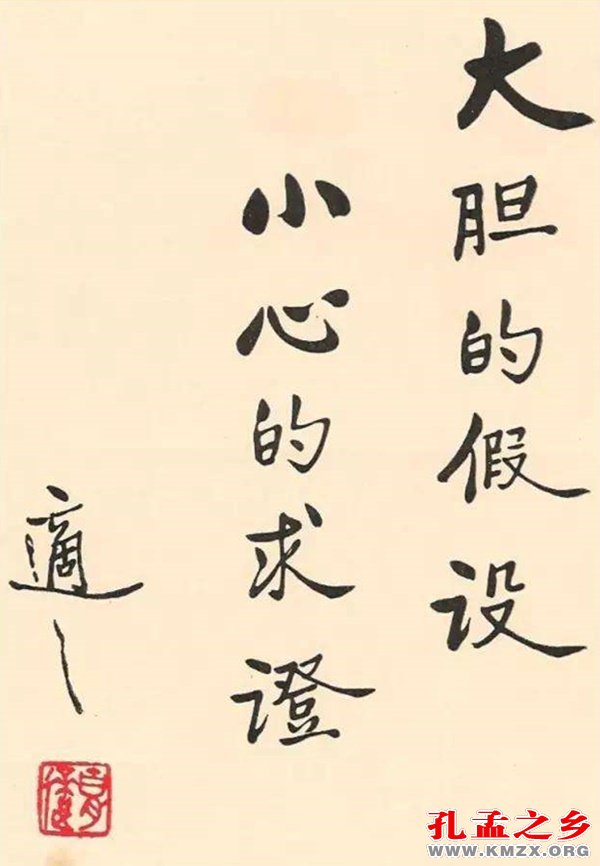 大胆的假设
小心的求證
適之
胡適
孔孟之乡
WWW.KMZX.ORG